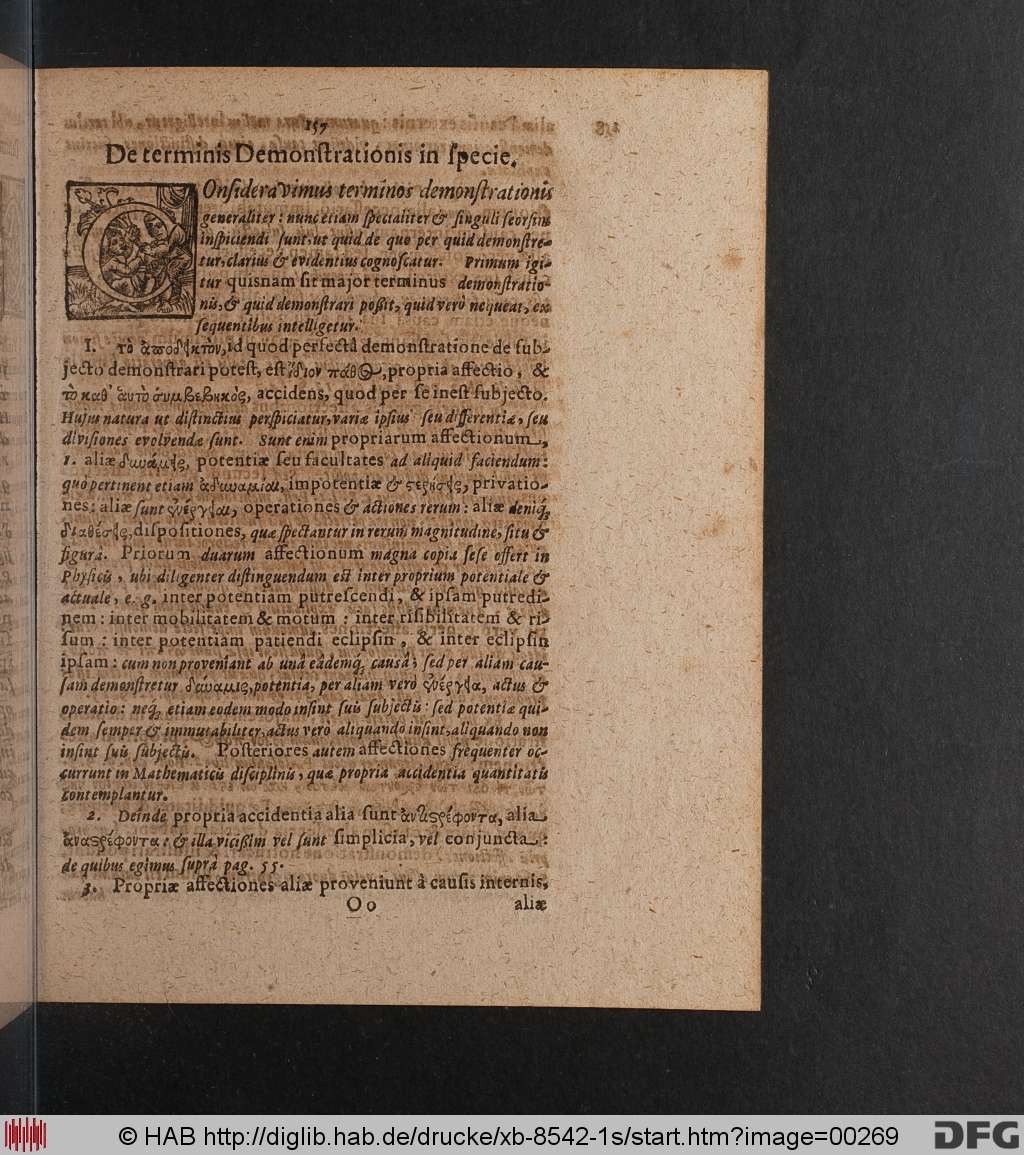 157
De terminis Demonſtrationis in ſpecie.
COnſideravimus terminos demonſtrationis
generaliter: nunc etiam ſpecialiter & ſinguli ſeorſim
inſpiciendi ſunt, ut quid de quo per quid demonſtre-
tur, clarius & evidentius cognoſcatur. Primum igi-
tur quisnam ſit major terminus demonſtratio-
nis, & quid demonſtrari poßit, quid verò nequeat, ex
ſequentibus intelligetur.
I. τὸ ἀποδεικτὸν, id quod perfectâ demonſtratione de ſub-
jecto demonſtrari poteſt, eſt ἴδιον πάθος, propria affectio, &
τὸ καθ' ἁυτὸ συμβεβηκὸς, accidens, quod per ſe ineſt ſubjecto.
Hujus natura ut diſtinctius perſpiciatur, variæ ipſius ſeu differentiæ, ſeu
diviſiones evolvendæ ſunt. Sunt enim propriarum affectionum,
1. aliæ δυνάμεις, potentiæ ſeu facultates ad aliquid faciendum:
quò pertinent etiam ἀδυναμίαι, impotentiæ & ςερήσεις, privatio-
nes: aliæ ſunt ἐνέργειαι, operationes & actiones rerum: aliæ deniq́;
διαθέσεις, diſpoſitiones, quæ ſpectantur in rerum magnitudine, ſitu &
figurâ. Priorum duarum affectionum magna copia ſeſe offert in
Phyſicis, ubi diligenter diſtinguendum eſt inter proprium potentiale &
actuale, e. g. inter potentiam putreſcendi, & ipſam putredi-
nem: inter mobilitatem & motum: inter riſibilitatem & ri-
ſum: inter potentiam patiendi eclipſin, & inter eclipſin
ipſam: cum non proveniant ab unâ eâdemq́; causâ, ſed per aliam cau-
ſam demonſtretur δύναμις, potentia, per aliam verò ἐνέργεια, actus &
operatio: neq́; etiam eodem modo inſint ſuis ſubjectis: ſed potentiæ qui-
dem ſemper & immutabiliter, actus verò aliquando inſint, aliquando non
inſint ſuis ſubjectis. Poſteriores autem affectiones frequenter oc-
currunt in Mathematicis diſciplinis, quæ propria accidentia quantitatis
contemplantur.
2. Deinde propria accidentia alia ſunt ἀντιςρέφοντα, alia
ἀναςρέφοντα: & illa vicißim vel ſunt ſimplicia, vel conjuncta:
de quibus egimus ſuprà pag. 55.
3. Propriæ affectiones aliæ proveniunt à cauſis internis,
Oo
aliæ
© HAB http://diglib.hab.de/drucke/xb-8542-1s/start.htm?image=00269
DFG